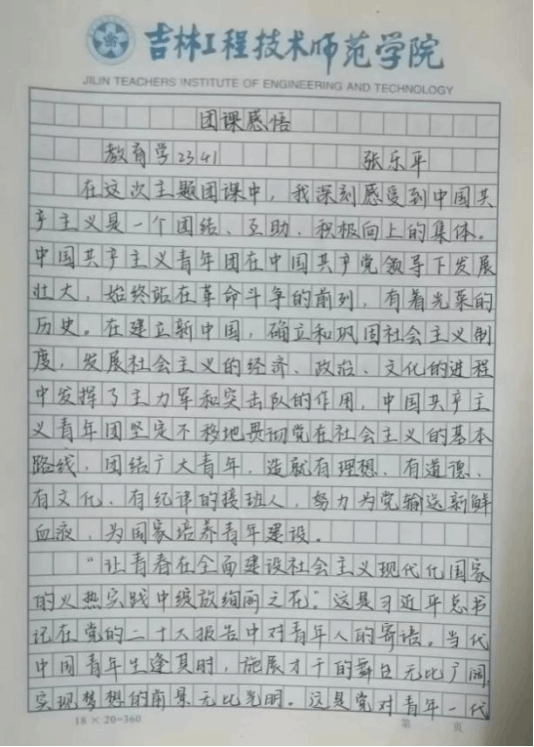 吉林工程技术师范学院
JILIN TEACHERS INSTITUTE OF ENGINEERING AND TECHNOLOGY
团课感悟
教育学2341 张乐平
在这次主题团课中，我深刻感受到中国共
产主义是一个团结、互助、积极向上的集体。
中国共产主义青年团在中国共产党领导下发展
壮大，始终站在革命斗争的前列，有着光荣的
历史。在建立新中国，确立和巩固社会主义制
度，发展社会主义的经济、政治、文化的进程
中发挥了主力军和突击队的作用，中国共产主
义青年团坚定不移地贯彻党在社会主义的基本
路线，团结广大青年，造就有理想、有道德、
有文化、有纪律的接班人，努力为党输送新鲜
血液，为国家培养青年建设。
“让青春在全面建设社会主义现代化国家
的火热实践中绽放绚丽之花”这是习近平总书
记在党的二十大报告中对青年人的寄语。当代
中国青年生逢其时，施展才干的舞台无比广阔，
实现梦想的前景无比光明。这是党对青年一代
18×20=360 第 页